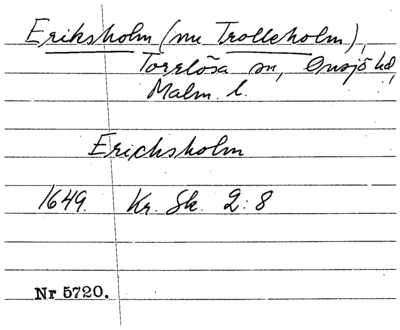 Eriksholm (nu Trolleholm),
Torrlösa sn, Onsjö hd,
Malm. l.
Erichsholm
1649. Kr. Sk. 2:8
Nr 5720.